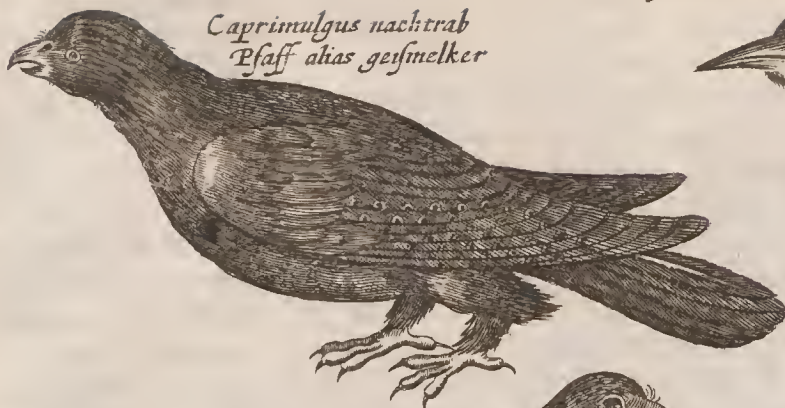 Caprimulgus nachtrab
Pfaff alias geiſmelker